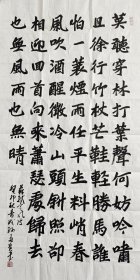 莫聽穿林打葉聲何妨吟嘯
且徐行竹杖芒鞋輕勝馬誰
怕一蓑煙雨任平生料峭春
風吹酒醒微冷山頭斜照却
相迎回首向來蕭瑟處歸去
也無風雨也無晴
蘇軾定風波